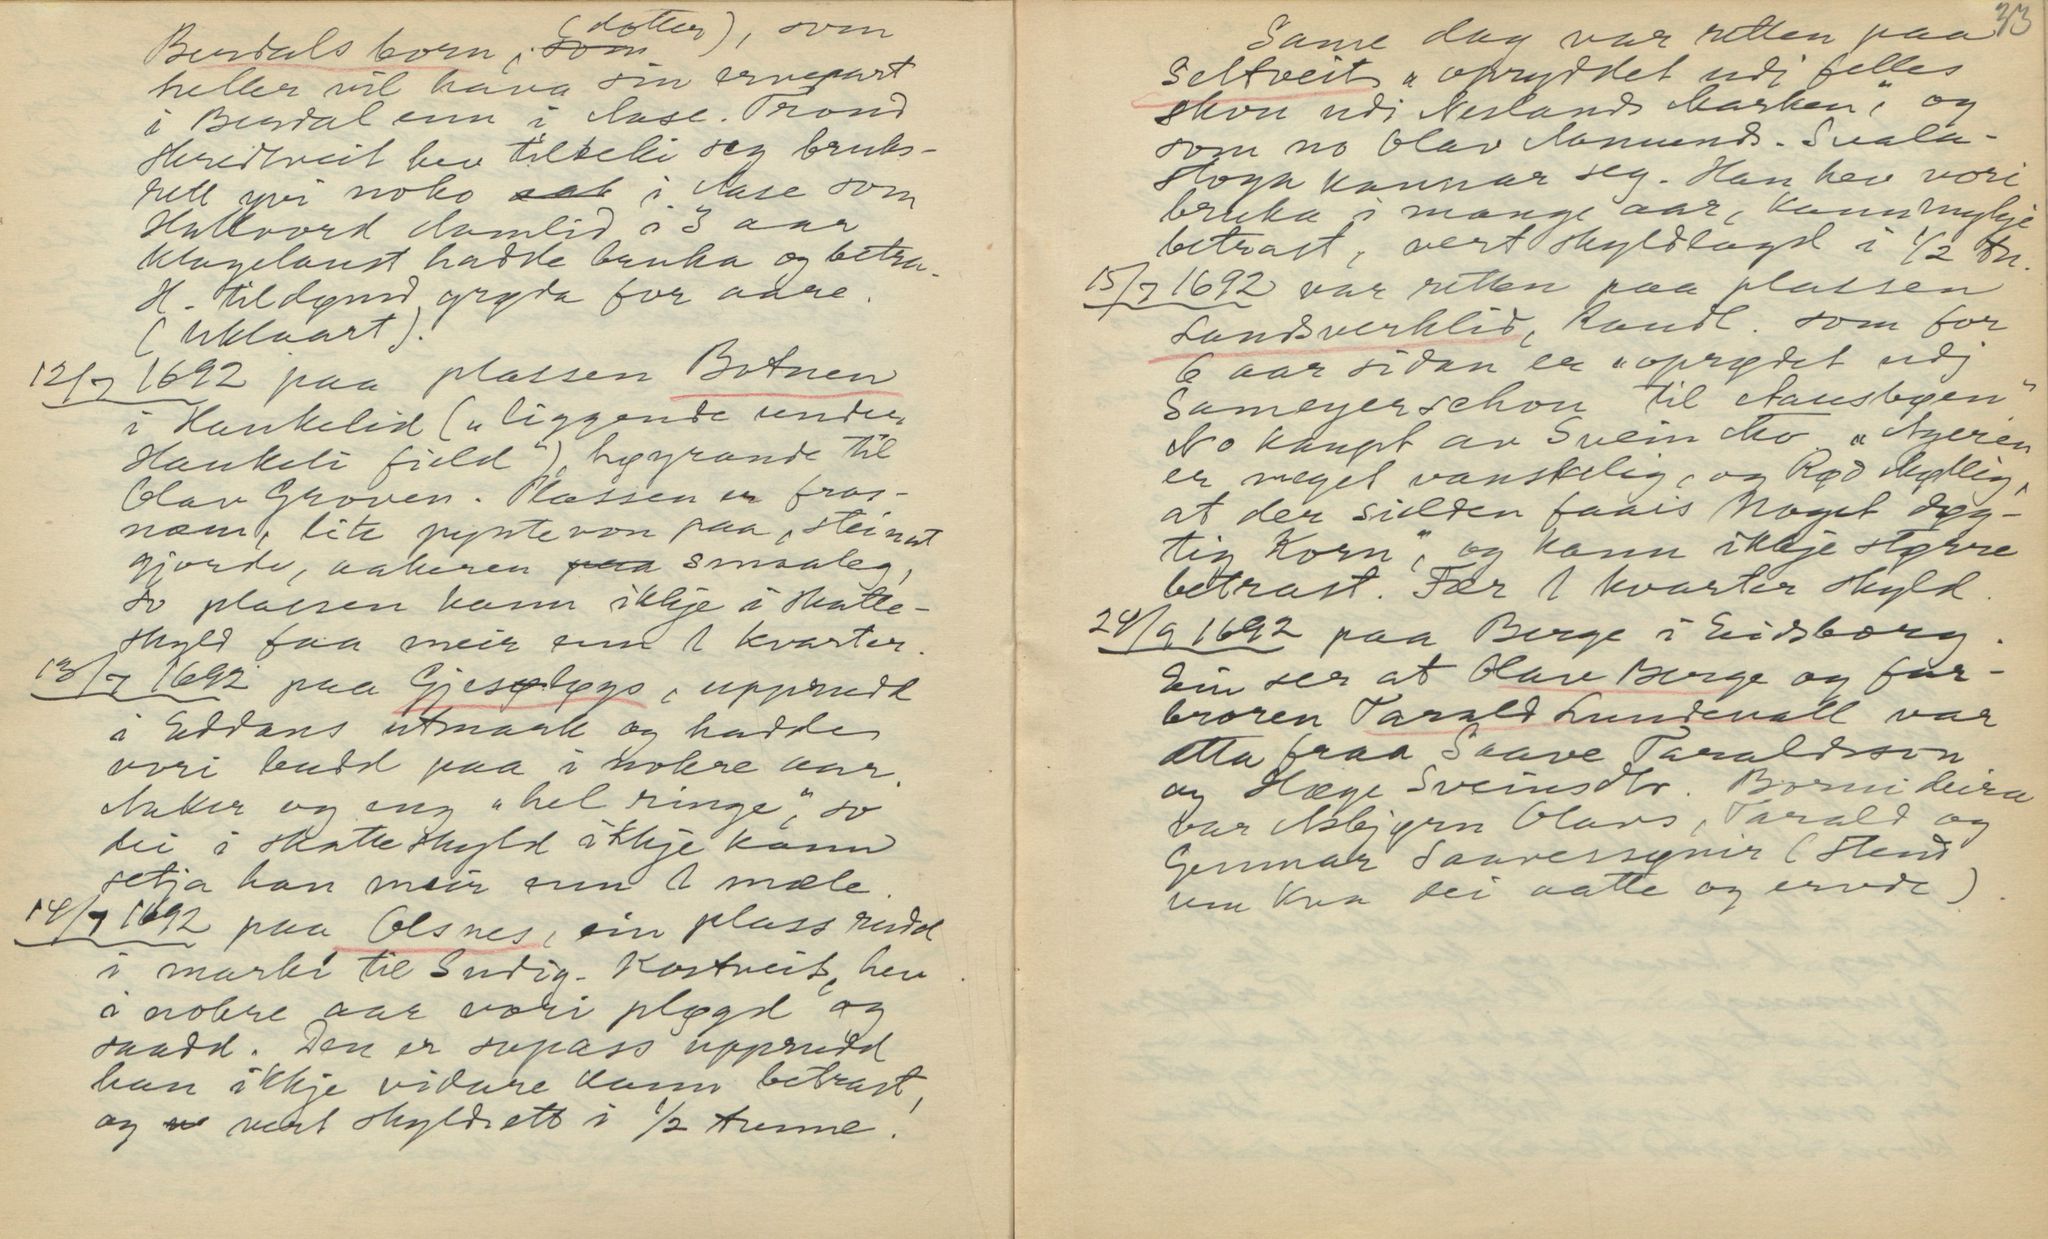 Burdals born, som (dotter), som
heller vil hava sin ervepart
i Burdal enn i Aase. Trond
Skredtveit hev tilteki seg bruks-
rett yvi noko sat i Aase som
Hallvord Aamlid i 3 aar
klagelaust hadde bruka og betra.
H. tildømd grøda for aare.
(Uklaart).
12/7 1692 paa plassen Botnen
i Haukelid („liggende under
Haukeli field"), høyrande til
Olav Groven. Plassen er fros-
næm, lite pyntevon paa, steinut
gjorde, aakeren paa smaaleg,
so plassen kann ikkje i skatte-
skyld faa meir enn 1 kvarter.
13/7 1692 paa Gjesøløys, upprudd
i Eddans utmark og hadde
vori budd paa i nokre aar.
Aaker og eng „hel ringe", so
dei i skatteskyld ikkje kann
setja han meir enn 1 mæle.
14/7 1692 paa Olsnes, ein plass rudd
i marki til Sudig. Kostveit, hev
i nokre aar vori pløgd og
saadd. Den er sopass upprudd
han ikkje vidare kann betrast,
og v vert skyldsett i 1/2 tunne.
33
Same dag var retten paa
Seltveit „opryddet udj felles
skou udi Neslands Marken", og
som no Olav Aamunds. Svala-
stoga kannar seg. Han hev vori
bruka i mange aar, kann mykje
betrast, vert skyldlagd i 1/2 tn.
15/7 1692 var retten paa plassen
Landsverklid, Rauål. som for
6 aar sidan er „oprødet udj
Sameyerschou til Naustøen"
No kaupt av Svein Mo. „Ageren
er meget vanskelig, og Rød Mødlig,
at der sielden faais Noget døg-
tig Korn", og kann ikkje større
betrast. Fær 1 kvarter skyld.
24/9 1692 paa Berge i Eidsborg.
Ein ser at Olav Berge og far-
broren Tarald Lundevall var
ætta fraa Saave Taraldsson
og Hæge Sveinsdtr. Borni deira
var Asbjørn Olavs, Tarald og
Gunnar Saavessynir (Stend
um kva dei aatte og ervde).